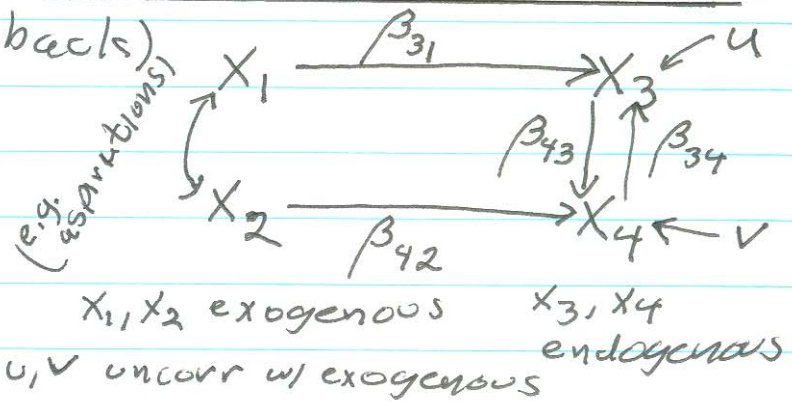 back)
(e.g. aspirations)
X₁ β₃₁ X₃ u
β₄₃ β₃₄
X₂ β₄₂ X₄ v
X₁, X₂ exogenous X₃, X₄
endogenous
u, v uncorr w/ exogenous